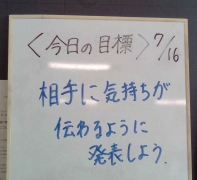 〈今日の目標〉7/16
相手に気持ちが
伝わるように
発表しよう.